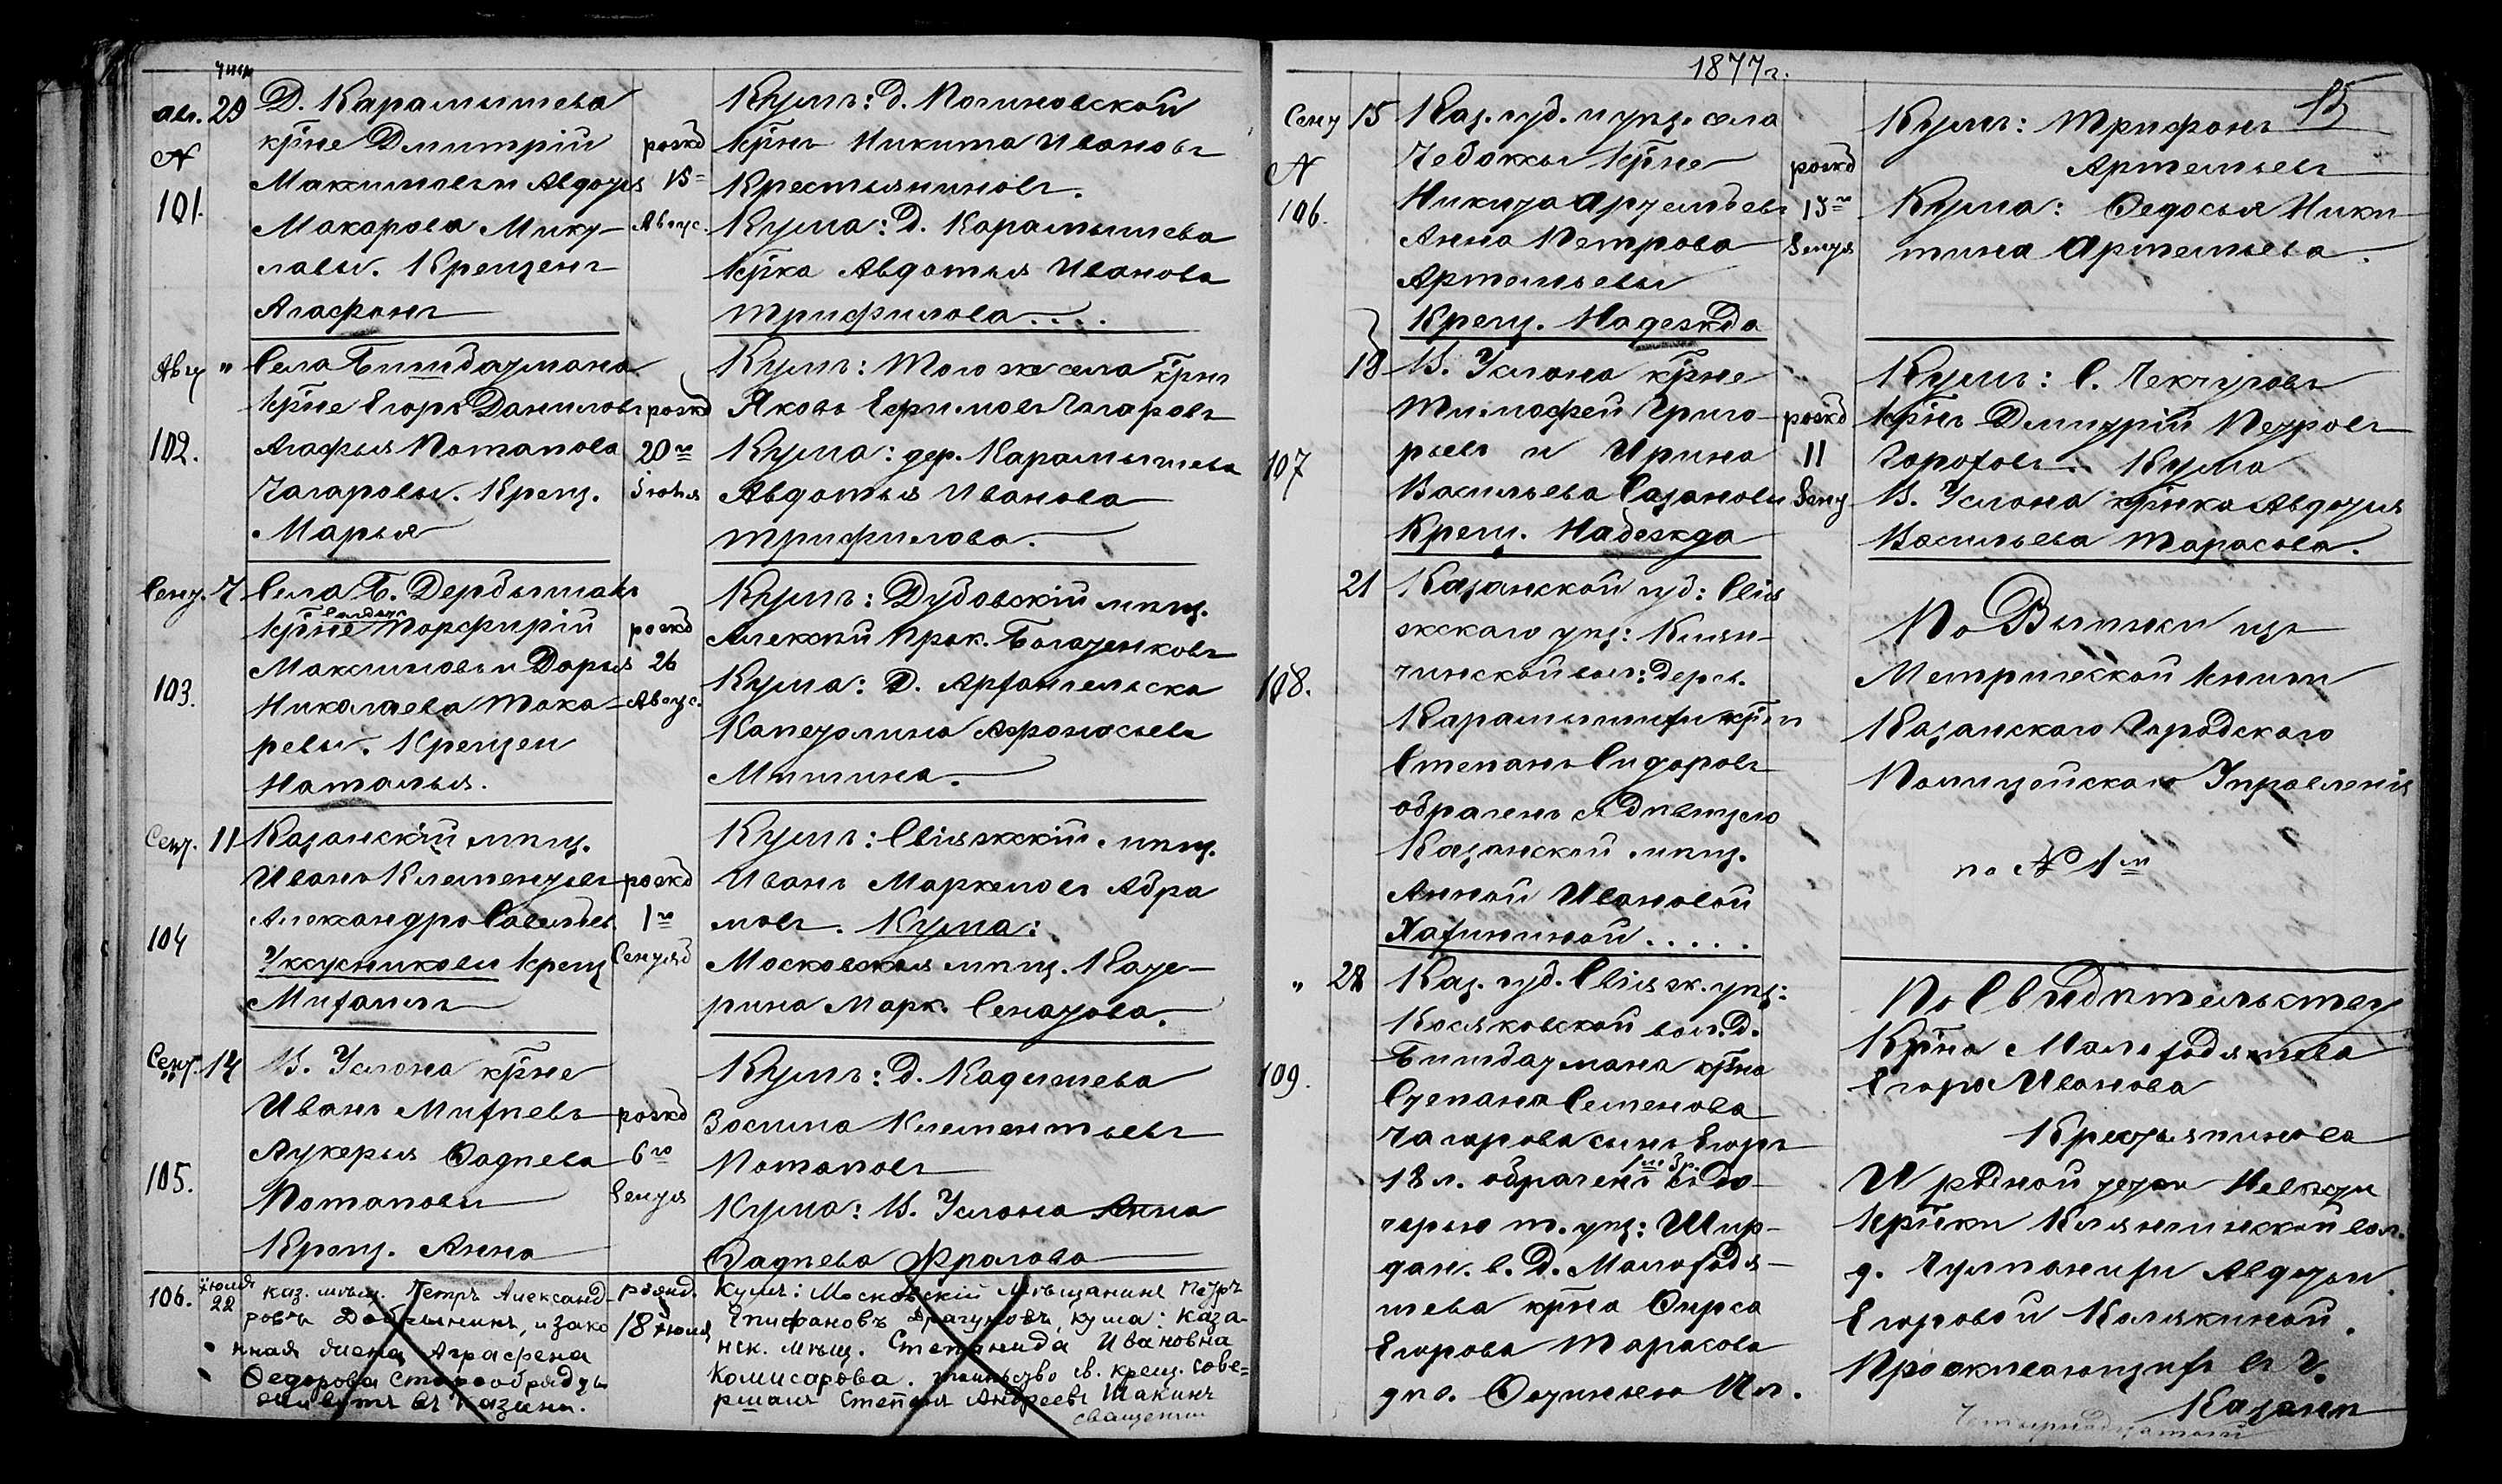 числ
Авг. 29
№
101.
Д. Карамышева
кр͞не Дмитрiй
Максимовъ и Авдотья
Макарова Мику-
лавы. Крещенъ
Агафонъ
рожд
15
Август.
Кумъ: д. Погиновской
кр͞нъ Никита Ивановъ
Крестьяниновъ.
Кума: Д. Карамышева
кр͞ка Авдотья Иванова
Трифилова....
Авгу "
102.
Села Бишбатмана
кр͞не Егоръ Даниловъ
Агафья Потапова
Чагаровы. Крещ.
Марья
рожд
20го
Iюля
Кумъ: Того же села кр͞нъ
Яковъ Ефимовъ Чагаровъ
Кума: дер. Карамышева
Авдотья Иванова
Трифилова.
Сент. 7
103.
Села Б. Дербышовъ
кр͞не Порфирiй
Максимовъ и Дарья
Николаева Тока-
ревы. Крещен
Наталья.
рожд
26
Август.
Кумъ: Дубовскiй мѣщ.
Алексѣй Прок. Богатенковъ
Кума: Д. Архангельска
Капетолина Афонасьева
Мишина.
Сент. 11
104
Казанскiй мѣщ.
Иванъ Клементьевъ
Александра Савельев.
Уксусниковы Крещ
Михаилъ
рожд
1го
Сентяб
Кумъ: Свiяжскiй мѣщ.
Иванъ Маркеловъ Абра
мовъ. Кума:
Московская мѣщ. Кате-
рина Марк. Сенатова.
Сент. 14
105.
В. Услона кр͞не
Иванъ Михѣевъ
Лукерья Фадѣева
Потаповы
Крещ. Анна
рожд
6го
Сентя
Кумъ: д. Кадышева
Зосима Клементьевъ
Потаповъ
Кума: В. Услона Анна
Фадѣева Фролова
106. iюля
22
Каз. мѣщ. Петръ Александ-
ровъ Добрынинъ, и зако
нная жена Аграфена
Федорова Старообрядцы
живутъ въ Казани.
рожд.
18 iюля
Кумъ: Московскiй Мѣщанинъ Петръ
Епифановъ Драгуновъ, кума: Каза-
нск. мѣщ. Степанида Ивановна
Комисарова. таиньство св. крещ. сове=
ршалъ Степанъ Андреевъ Шакинъ
священни
1877 г.
15
Сент 15
№
106.
Каз. губ. и уѣз. села
Чебоксы кр͞не
Никита Артемьевъ
Анна Петрова
Артемьевы
Крещ. Надежда
рожд
13го
Сентя
Кумъ: Трифонъ
Артемьевъ
Кума: Федосья Ники-
тина Артемьева.
18
107
В. Услона кр͞не
Тимофей Григо-
рьевъ и Ирина
Васильева Сазановы
Крещ. Надежда
рожд
11
Сент
Кумъ: С. Текчуровъ
кр͞нъ Дмитрiй Петровъ
Гороховъ. Кума
В. Услона кр͞нка Авдотья
Васильева Тарасова.
21
108.
Казанской губ: Свiя
жскаго уѣз: Клян-
чинской вол: Дерев.
Карамышихи кр͞нъ
Степанъ Сидоровъ
обрачень съ Дѣвицею
Казанской мѣщ.
Анной Ивановой
Хахининой.....
По Выписи изъ
Метрической книги
Казанскаго Городского
Полицейскаго Управленiя
по № 1м
" 28
109.
Каз. губ. Свiяж. уѣз:
Косяковской вол. Д.
Бишбатмана кр͞на
Степана Семенова
Чагарова сынъ Егоръ
18 л. обрачень съ до-
черью т. уѣз: Шир-
дан. в. Д. Малоходя-
шева кр͞на Фирса
Егорова Тарасова
дѣв.
По Свидѣтельству
Кр͞на Малоходяшева
Егора Иванова
Крестьянинова
И родной тетки Невѣсты
кр͞нки Клянчинской вол.
д. Гулпанихи Авдотьи
Егоровой Калякиной.
Проживающихъ въ Г.
Казани